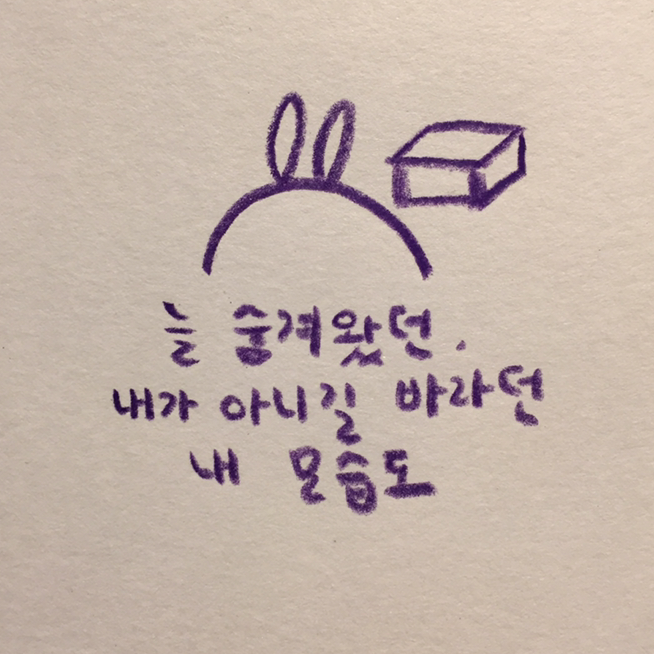 늘 숨겨왔던.
내가 아니길 바라던
내 모습도